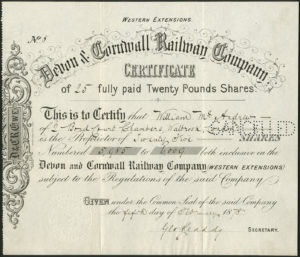 WESTERN EXTENSIONS.
No. 8
Devon & Cornwall Railway Company
CERTIFICATE
of 25 fully paid Twenty Pounds Shares.
This is to Certify that William
of 2 Chambers,
is the Proprietor of Twenty five SHARES
Numbered 5985 to 6009 both inclusive in the
Devon and Cornwall Railway Company (WESTERN EXTENSIONS)
subject to the Regulations of the said Company
GIVEN under the Common Seal of the said Company
the fifth day of February 18
SECRETARY.